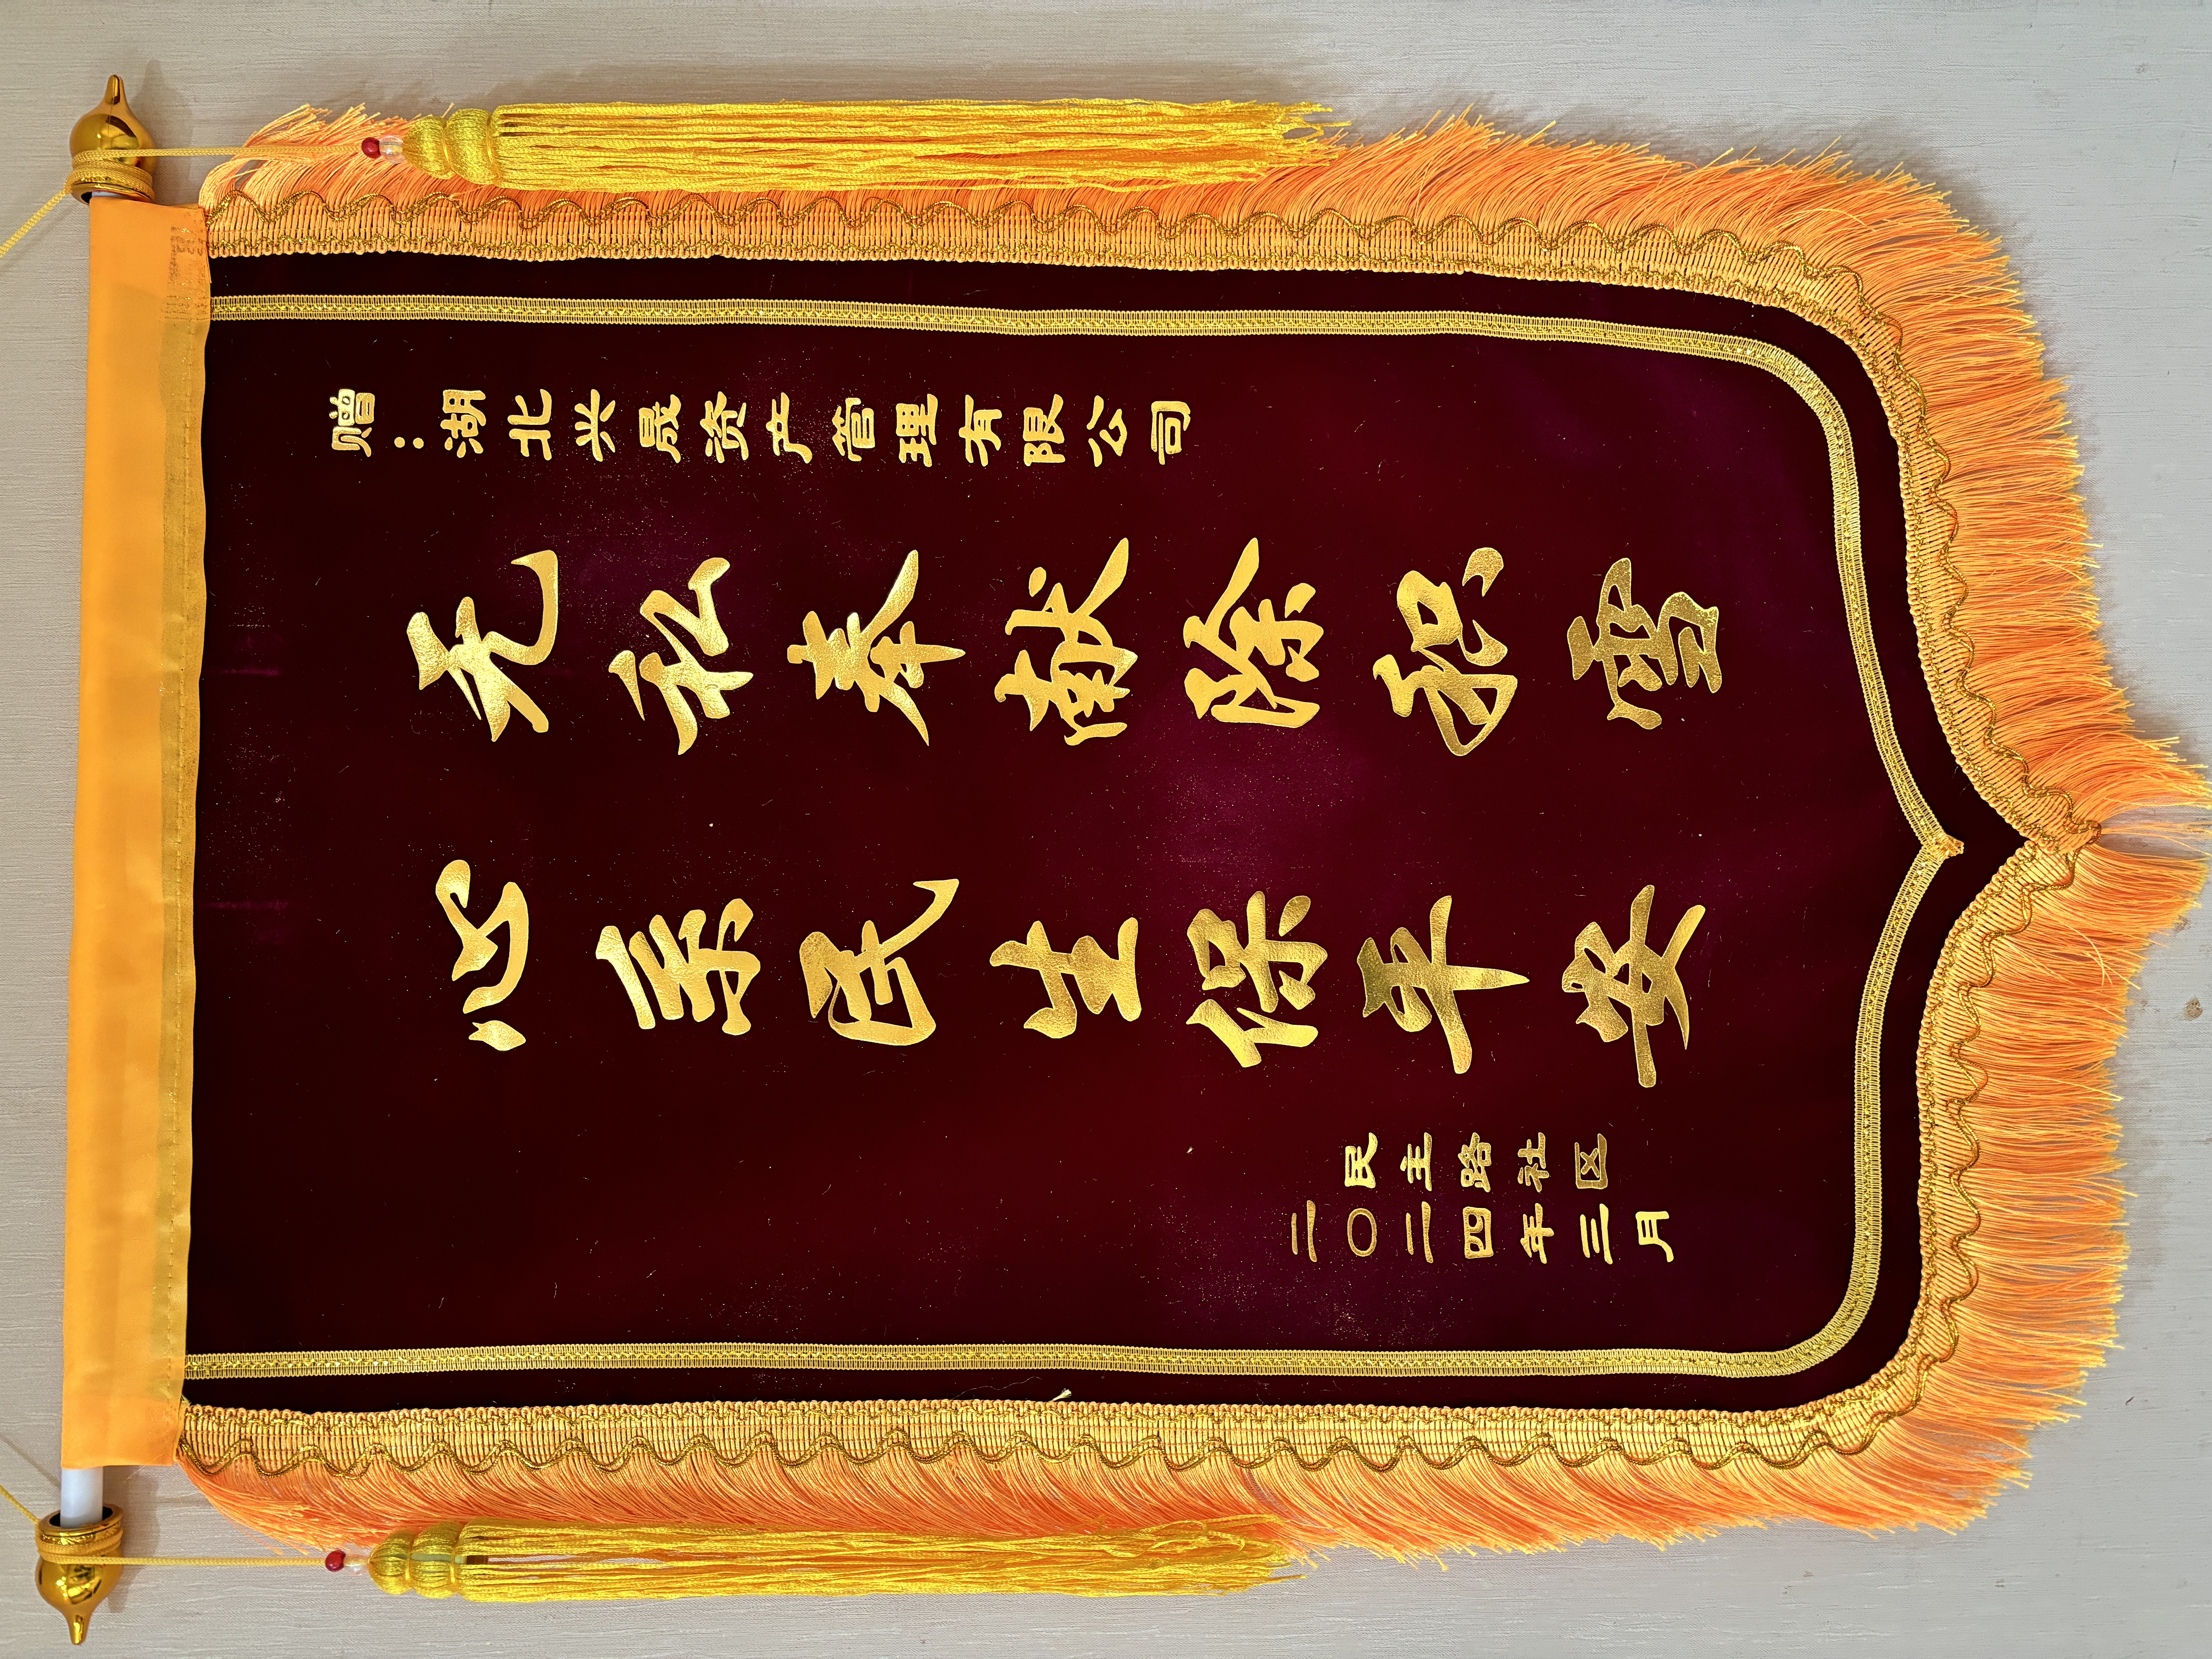 赠：湖北兴晟资产管理有限公司
无私奉献除积雪
心系民生保平安
民主路社区
二〇二四年三月